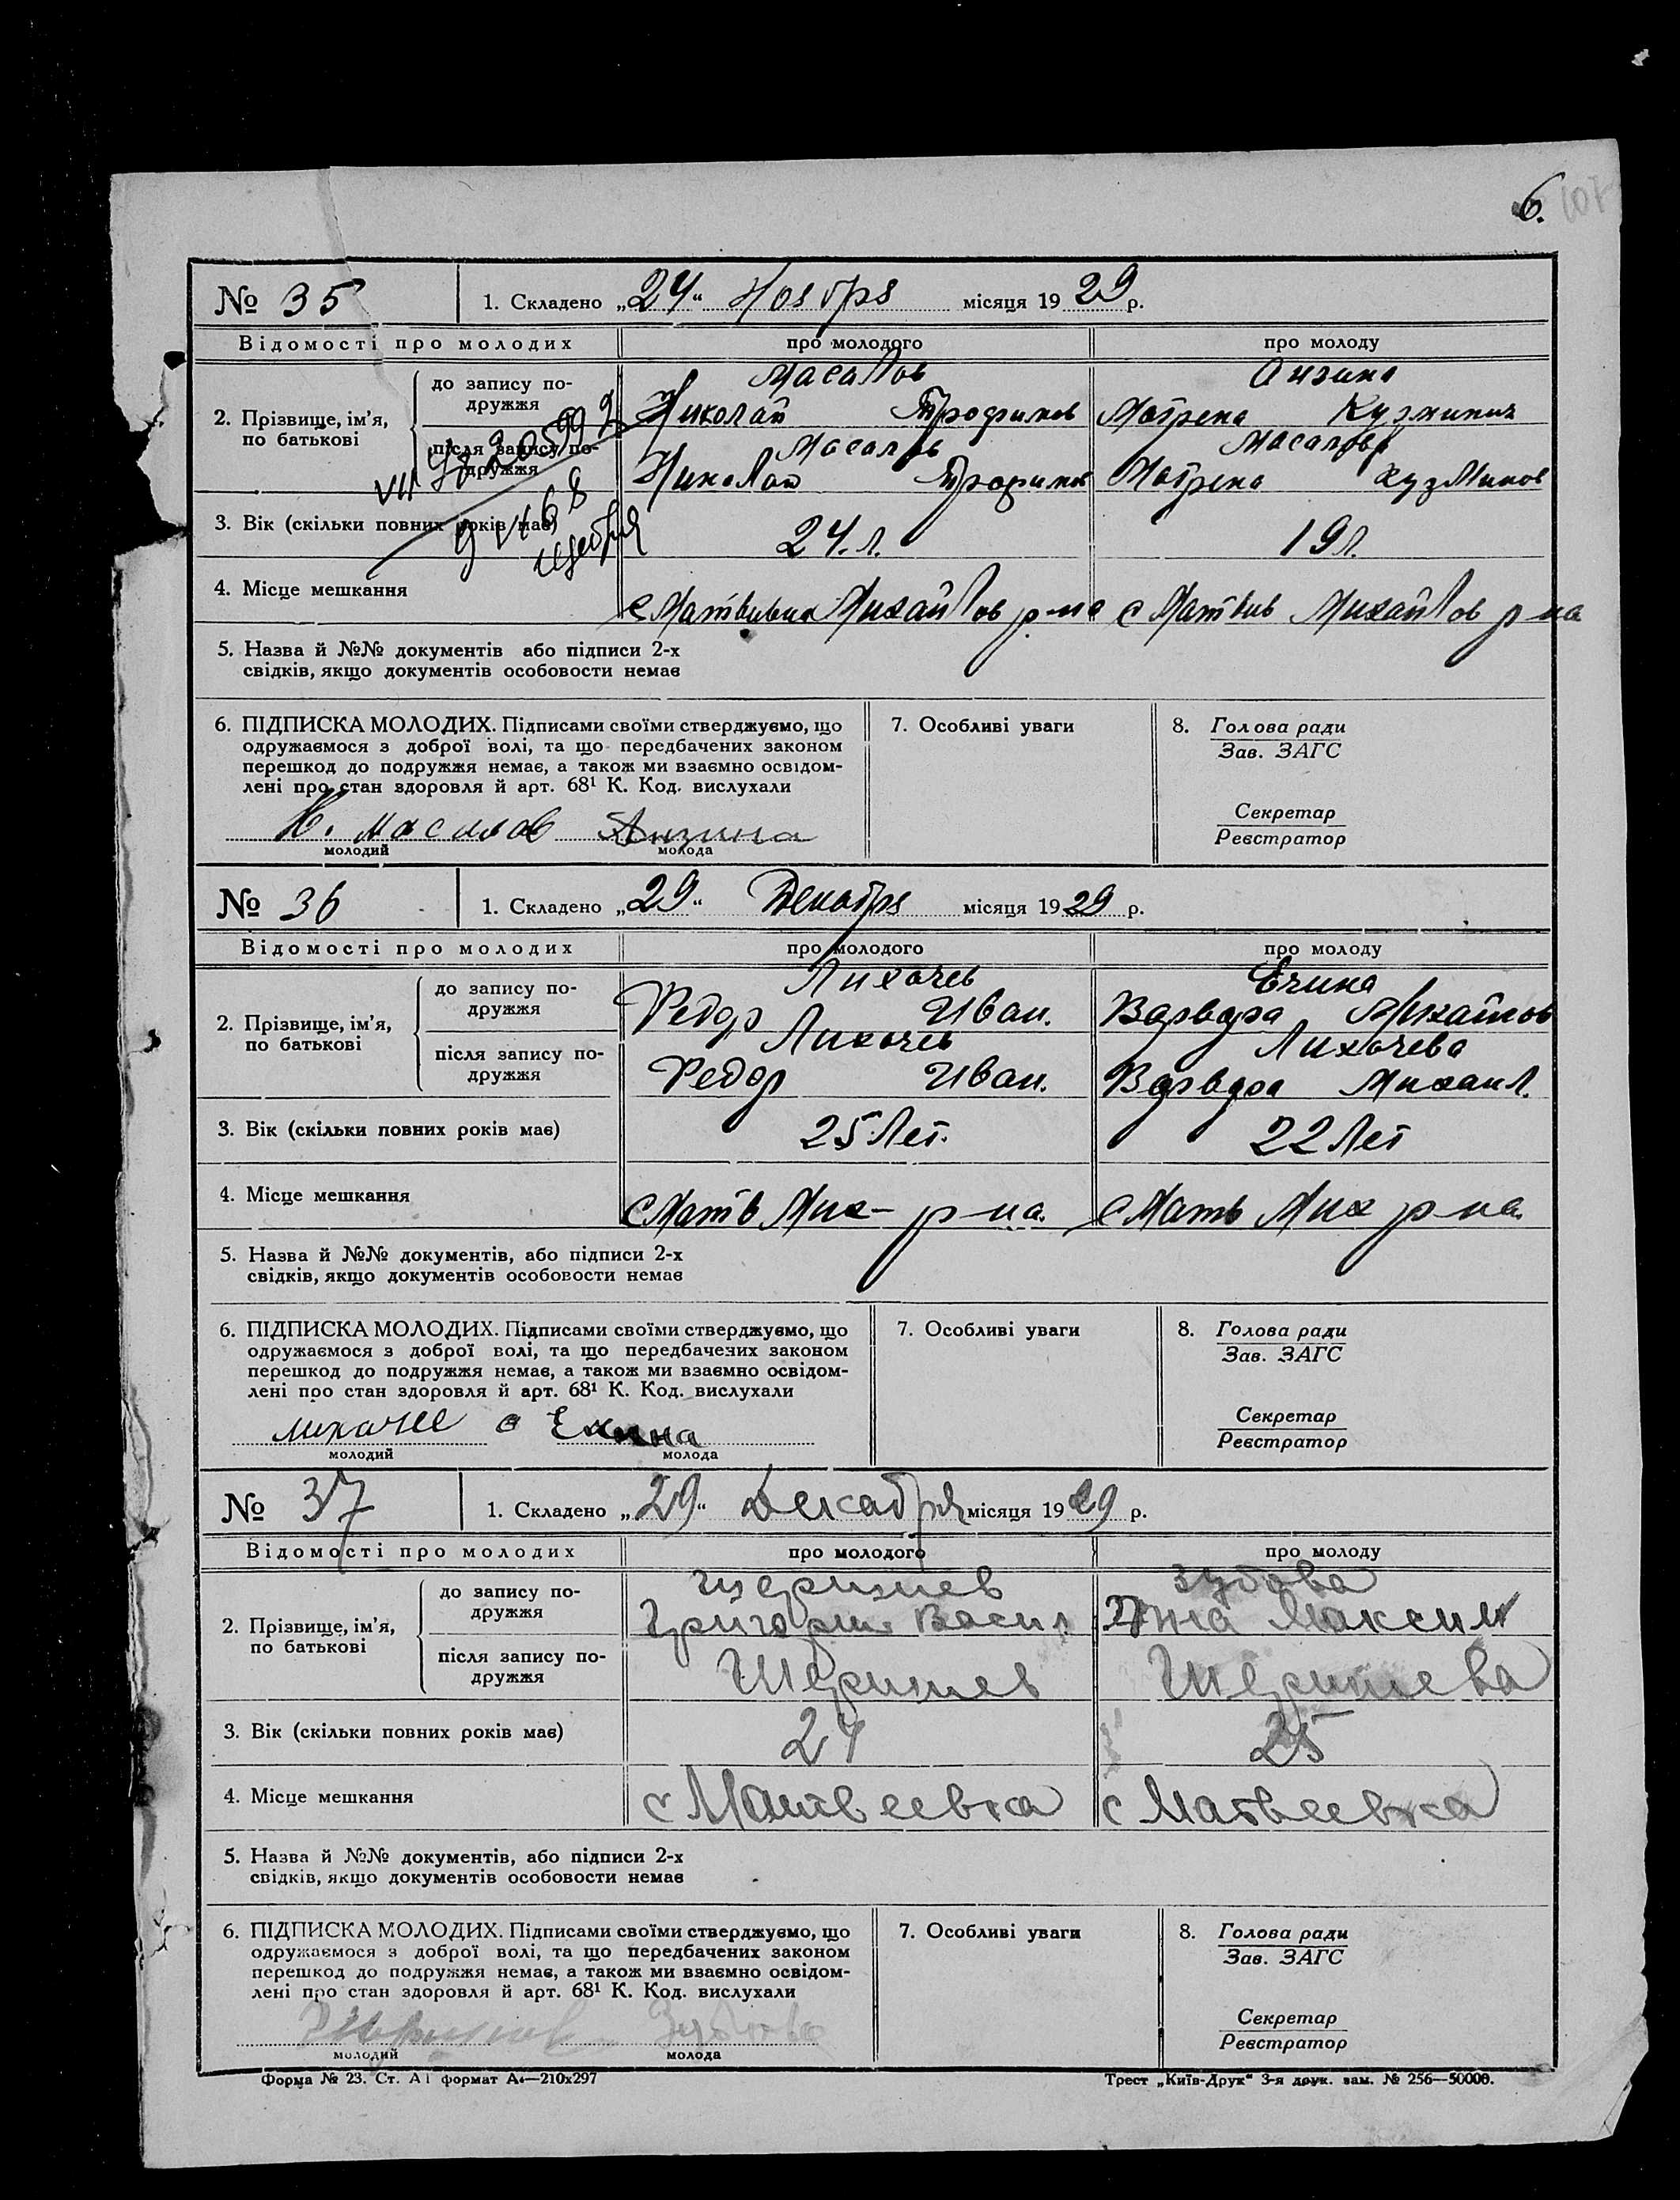 6.
№ 35 1. Складено „24“ Ноября місяця 1929 р.
Відомості про молодих про молодого про молоду
2. Прізвище, ім'я, по батькові
до запису по-
дружжя
Масалов
Николай Трофимов
Анзина
Мотрена Кузминич
після запису по-
дружжя
Масалов
Николай Трофимов
Масалова
Мотрена Кузминов
3. Вік (скільки повних років має) 24.л. 19л.
4. Місце мешкання
с Матвивка Михайлов р-на с Матвив Михайлов р-на
5. Назва й №№ документів або підписи 2-х
свідків, якщо документів особовости немає
6. ПІДПИСКА МОЛОДИХ. Підписами своїми стверджуємо, що
одружаємося з доброї волі, та що передбачених законом
перешкод до подружжя немає, а також ми взаємно освідом-
лені про стан здоровля й арт. 68¹ К. Код. вислухали
Н. масалов Анзина
молодий молода
7. Особливі уваги
8. Голова ради
Зав. ЗАГС
Секретар
Реєстратор
№ 36 1. Складено „29“ Декабря місяця 1929 р.
Відомості про молодих про молодого про молоду
2. Прізвище, ім'я,
по батькові
до запису по-
дружжя
Лихачев
Федор Иван.
Ечина
Варвара Михайлов
після запису по-
дружжя
Лихачев
Федор Иван.
Лихачева
Варвара Михаил.
3. Вік (скільки повних років має) 25 Лет. 22 Лет
4. Місце мешкання
с Матв Мих- р-на. с Матв Мих р-на.
5. Назва й №№ документів, або підписи 2-х
свідків, якщо документів особовости немає
6. ПІДПИСКА МОЛОДИХ. Підписами своїми стверджуємо, що
одружаємося з доброї волі, та що передбачених законом
перешкод до подружжя немає, а також ми взаємно освідом-
лені про стан здоровля й арт. 68¹ К. Код. вислухали
лихачев
молодий молода
7. Особливі уваги
8. Голова ради
Зав. ЗАГС
Секретар
Реєстратор
№ 37 1. Складено „29“ Декабря місяця 1929 р.
Відомості про молодих про молодого про молоду
2. Прізвище, ім'я,
по батькові
до запису по-
дружжя
Григорий Васил
Зубова
Максим
після запису по-
дружжя
3. Вік (скільки повних років має) 24 25
4. Місце мешкання
с Матвеевка с Матвеевка
5. Назва й №№ документів, або підписи 2-х
свідків, якщо документів особовости немає
6. ПІДПИСКА МОЛОДИХ. Підписами своїми стверджуємо, що
одружаємося з доброї волі, та що передбачених законом
перешкод до подружжя немає, а також ми взаємно освідом-
лені про стан здоровля й арт. 68¹ К. Код. вислухали
молодий молода
7. Особливі уваги
8. Голова ради
Зав. ЗАГС
Секретар
Реєстратор
Форма № 23. Ст. А1 формат А4—210х297 Трест „Київ-Друк“ 3-я друк. зам. № 256—50000.